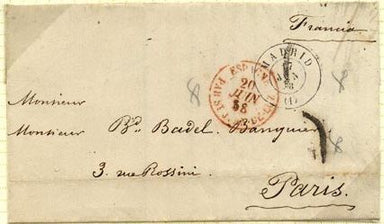 Francia
MADRID
(1)
20
JUIN
58
Monsieur
Monsieur Bd. Badel. Banquier
3. rue Rossini.
Paris.